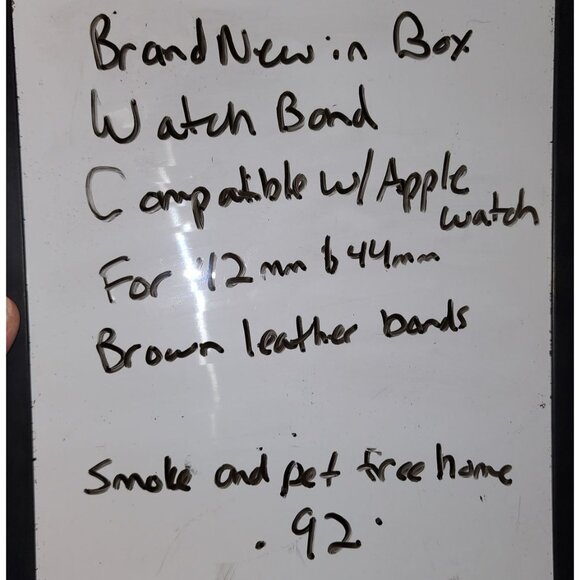 Brand New in Box
Watch Band
Compatible w/ Apple
watch
For 42mm & 44mm
Brown leather bands
Smoke and pet free home
. 92 .